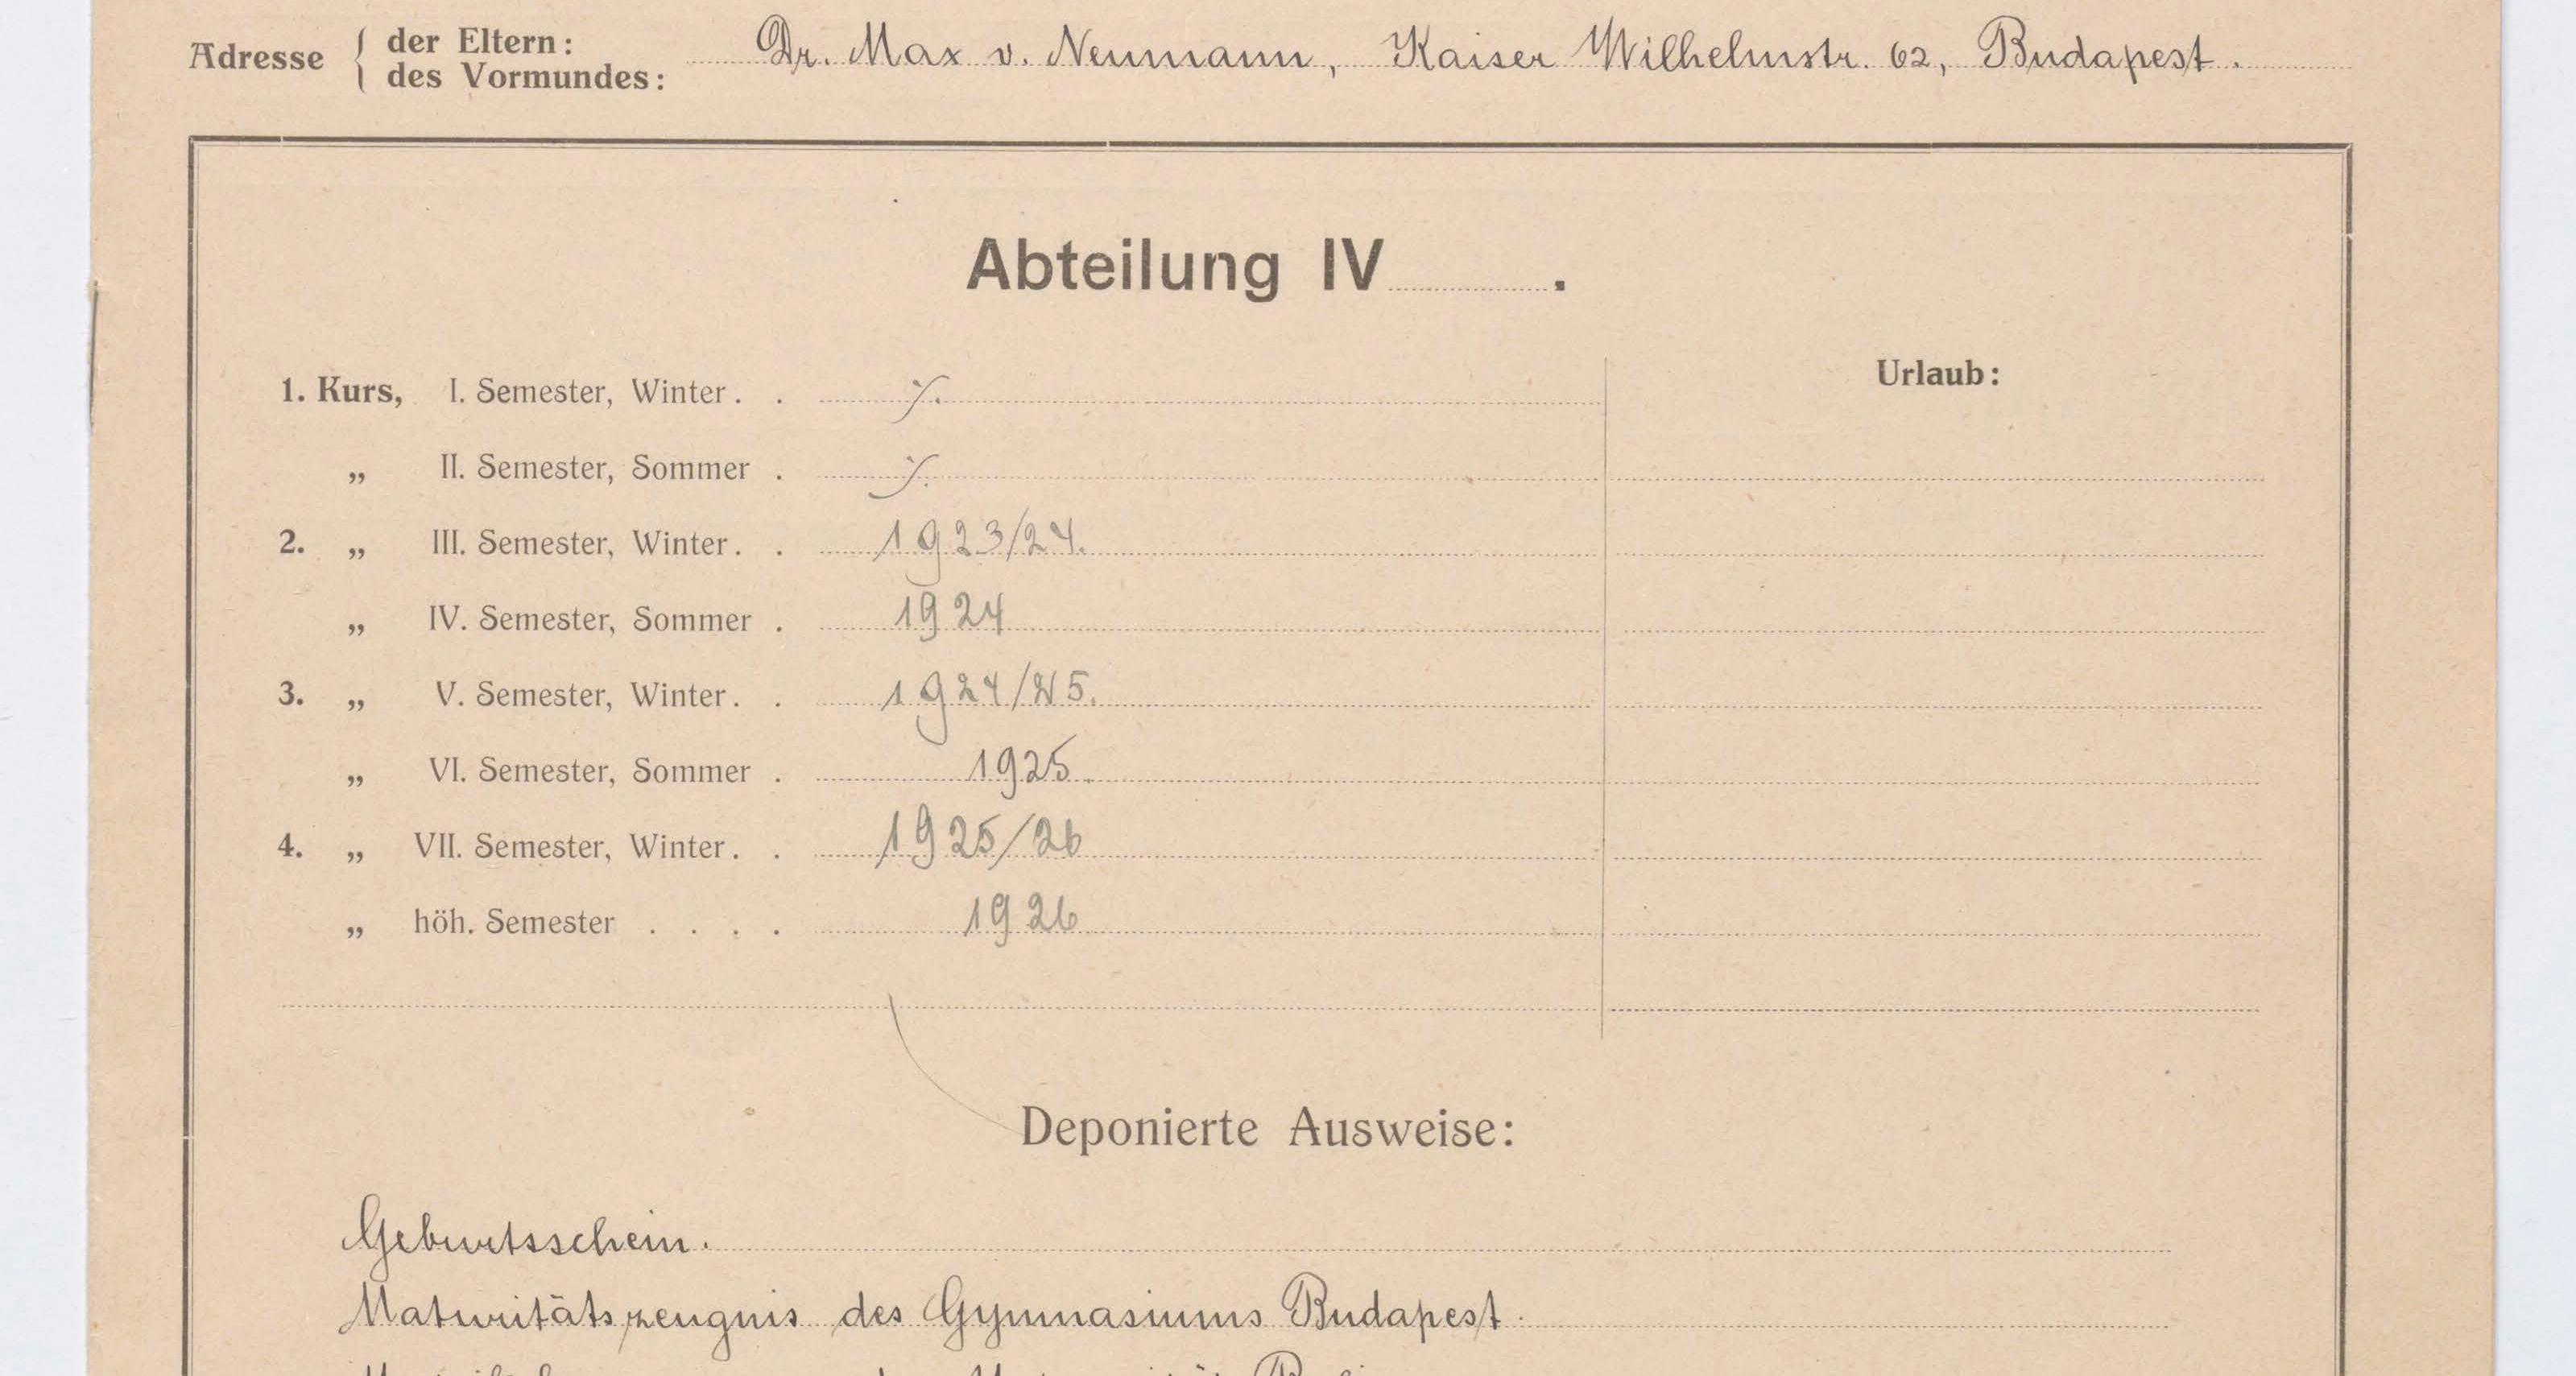 Adresse { der Eltern: Dr. Max v. Neumann, Kaiser Wilhelmstr. 62, Budapest.
des Vormundes:
Abteilung IV .
Urlaub:
1. Kurs, I. Semester, Winter . . ./.
„ II. Semester, Sommer . ./.
2. „ III. Semester, Winter . . 1923/24.
„ IV. Semester, Sommer . 1924
3. „ V. Semester, Winter . . 1924/25.
„ VI. Semester, Sommer . 1925.
4. „ VII. Semester, Winter . . 1925/26
„ höh. Semester . . . . 1926
Deponierte Ausweise:
Geburtsschein.
Maturitätszeugnis des Gymnasiums Budapest.